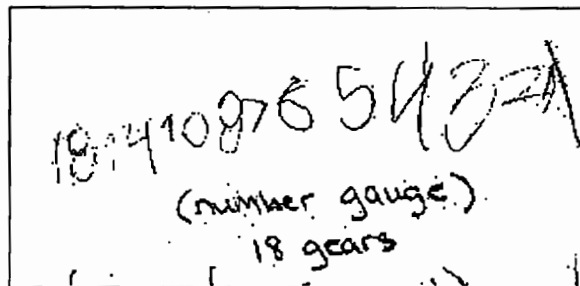 18 14 10 8 7 6 5 4 3 2 1
(number gauge)
18 gears